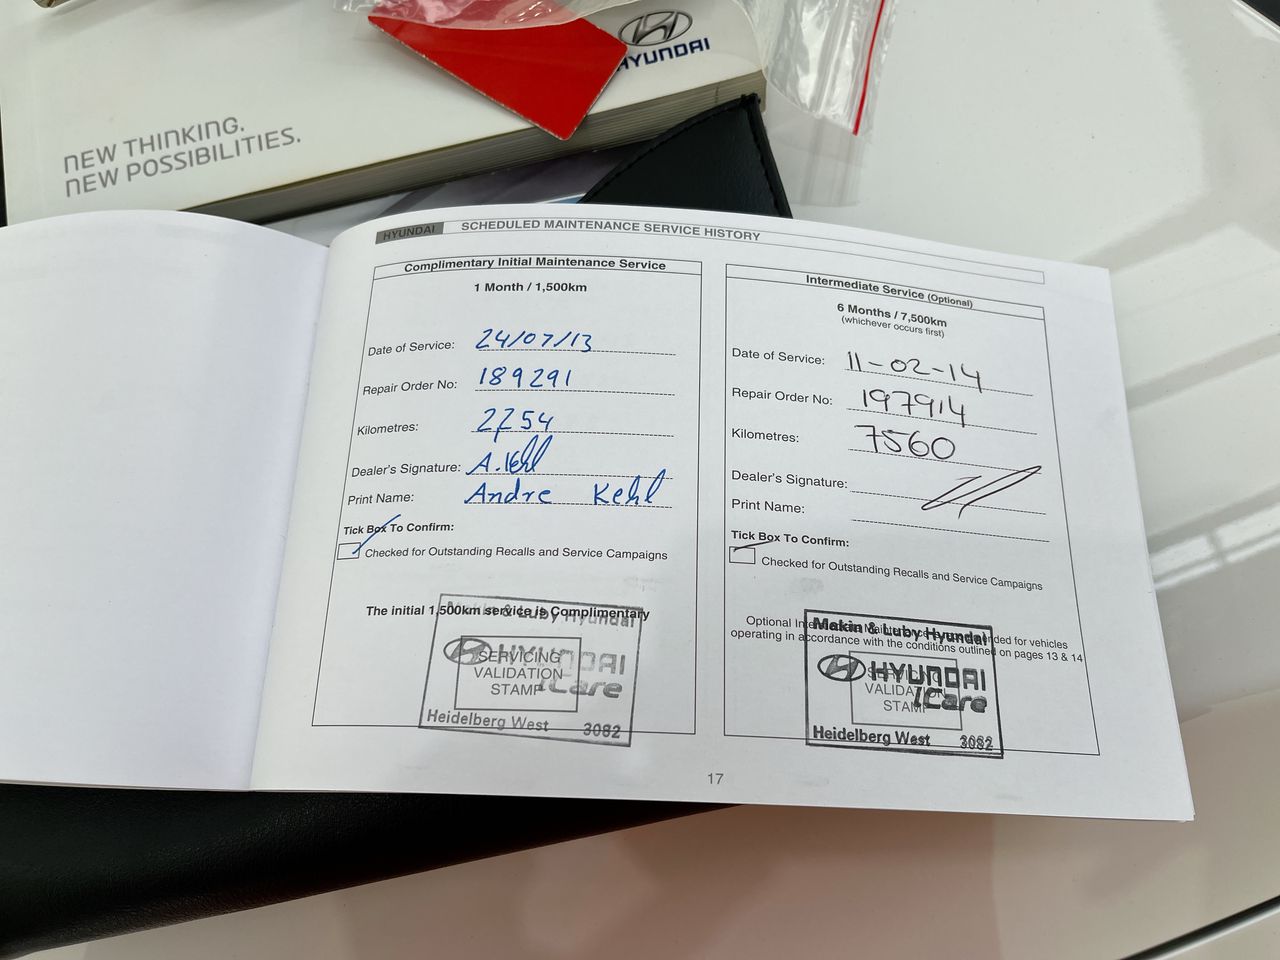 HYUNDAI
NEW THINKING.
NEW POSSIBILITIES.
HYUNDAI SCHEDULED MAINTENANCE SERVICE HISTORY
Complimentary Initial Maintenance Service
1 Month / 1,500km
Date of Service: 24/07/13
Repair Order No: 189291
Kilometres: 2254
Dealer's Signature: A. Kehl
Print Name: Andre Kehl
Tick Box To Confirm:
Checked for Outstanding Recalls and Service Campaigns
The initial 1,500km service is Complimentary
Makin & Luby Hyundai
HYUNDAI
iCare
SERVICING
VALIDATION
STAMP
Heidelberg West 3082
Intermediate Service (Optional)
6 Months / 7,500km
(whichever occurs first)
Date of Service: 11-02-14
Repair Order No: 197914
Kilometres: 7560
Dealer's Signature:
Print Name:
Tick Box To Confirm:
Checked for Outstanding Recalls and Service Campaigns
Optional for vehicles
operating in accordance with the conditions outlined on pages 13 & 14
Makin & Luby Hyundai
HYUNDAI
iCare
SERVICING
VALIDATION
STAMP
Heidelberg West 3082
17